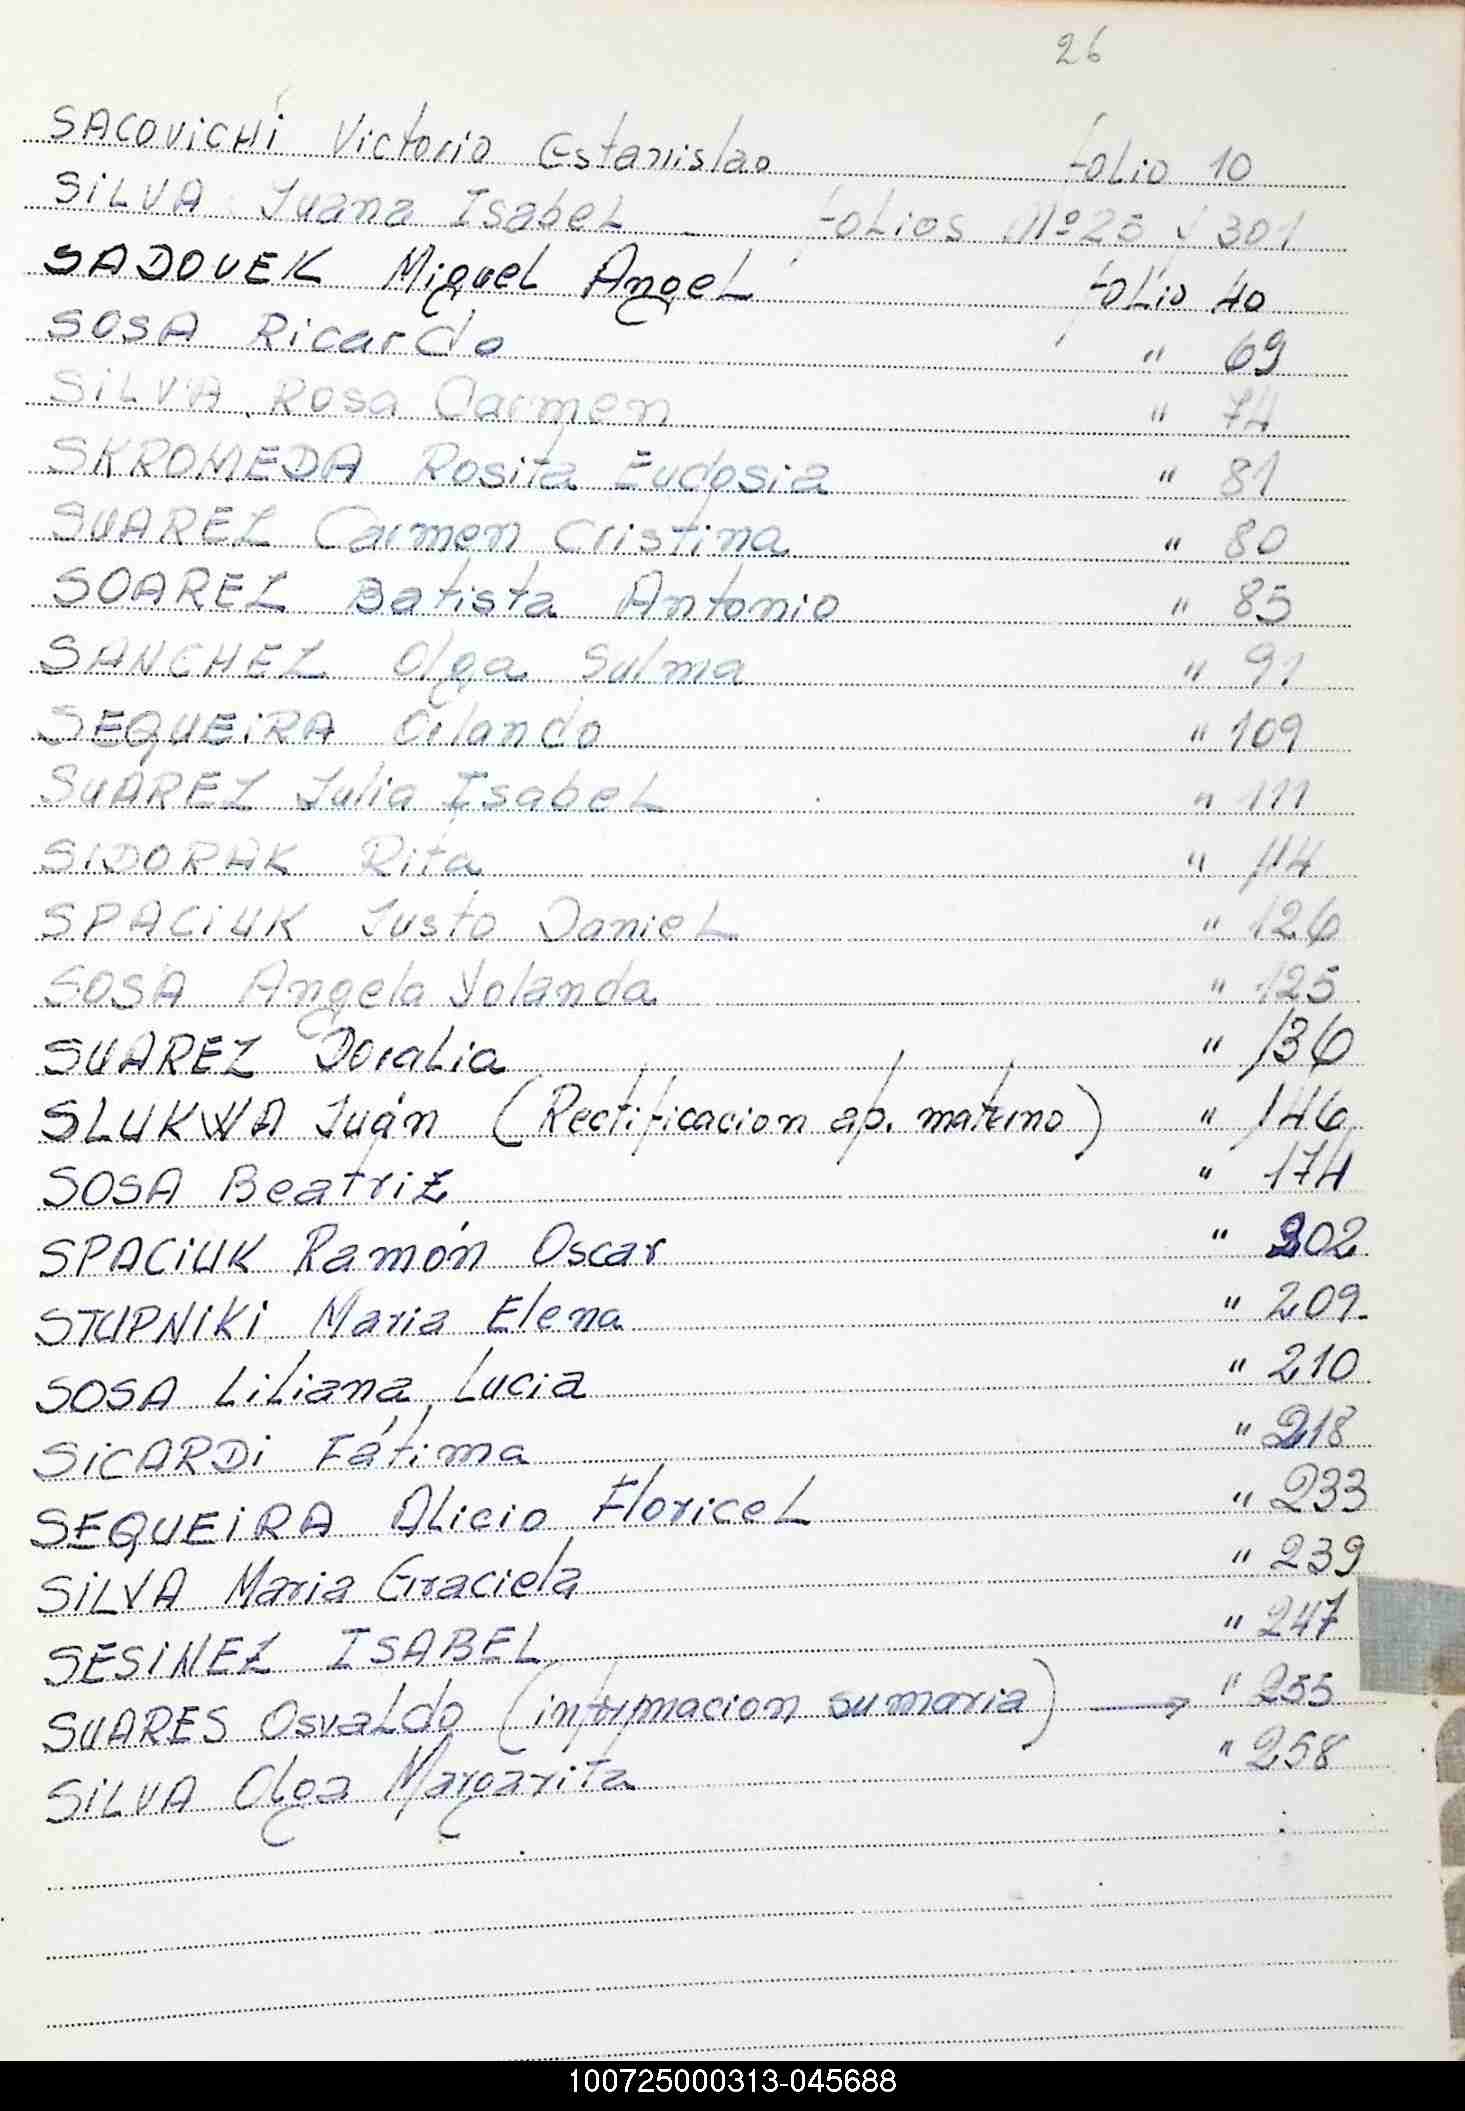 26
SACOVICHI Victorio Estanislao folio 10
SILVA Juana Isabel folios Nº 25 y 301
SADOVEK Miguel Angel folio 40
SOSA Ricardo " 69
SILVA Rosa Carmen " 74
SKROMEDA Rosita Eudosia " 81
SUAREZ Carmen Cristina " 80
SOAREZ Batista Antonio " 85
SANCHEZ Olga Sulma " 91
SEQUEIRA Orlando " 109
SUAREZ Julia Isabel " 111
SIDORAK Rita " 114
SPACIUK Justo Daniel " 126
SOSA Angela Yolanda " 125
SUAREZ Doralia " 136
SLUKWA Juan (Rectificacion ap. materno) " 146
SOSA Beatriz " 174
SPACIUK Ramón Oscar " 202
STUPNIKI Maria Elena " 209
SOSA Liliana Lucia " 210
SICARDI Fátima " 218
SEQUEIRA Alicio Floricel " 233
SILVA Maria Graciela " 239
SESINEZ ISABEL " 247
SUARES Osvaldo (informacion sumaria) → " 255
SILVA Olga Margarita " 258
100725000313-045688